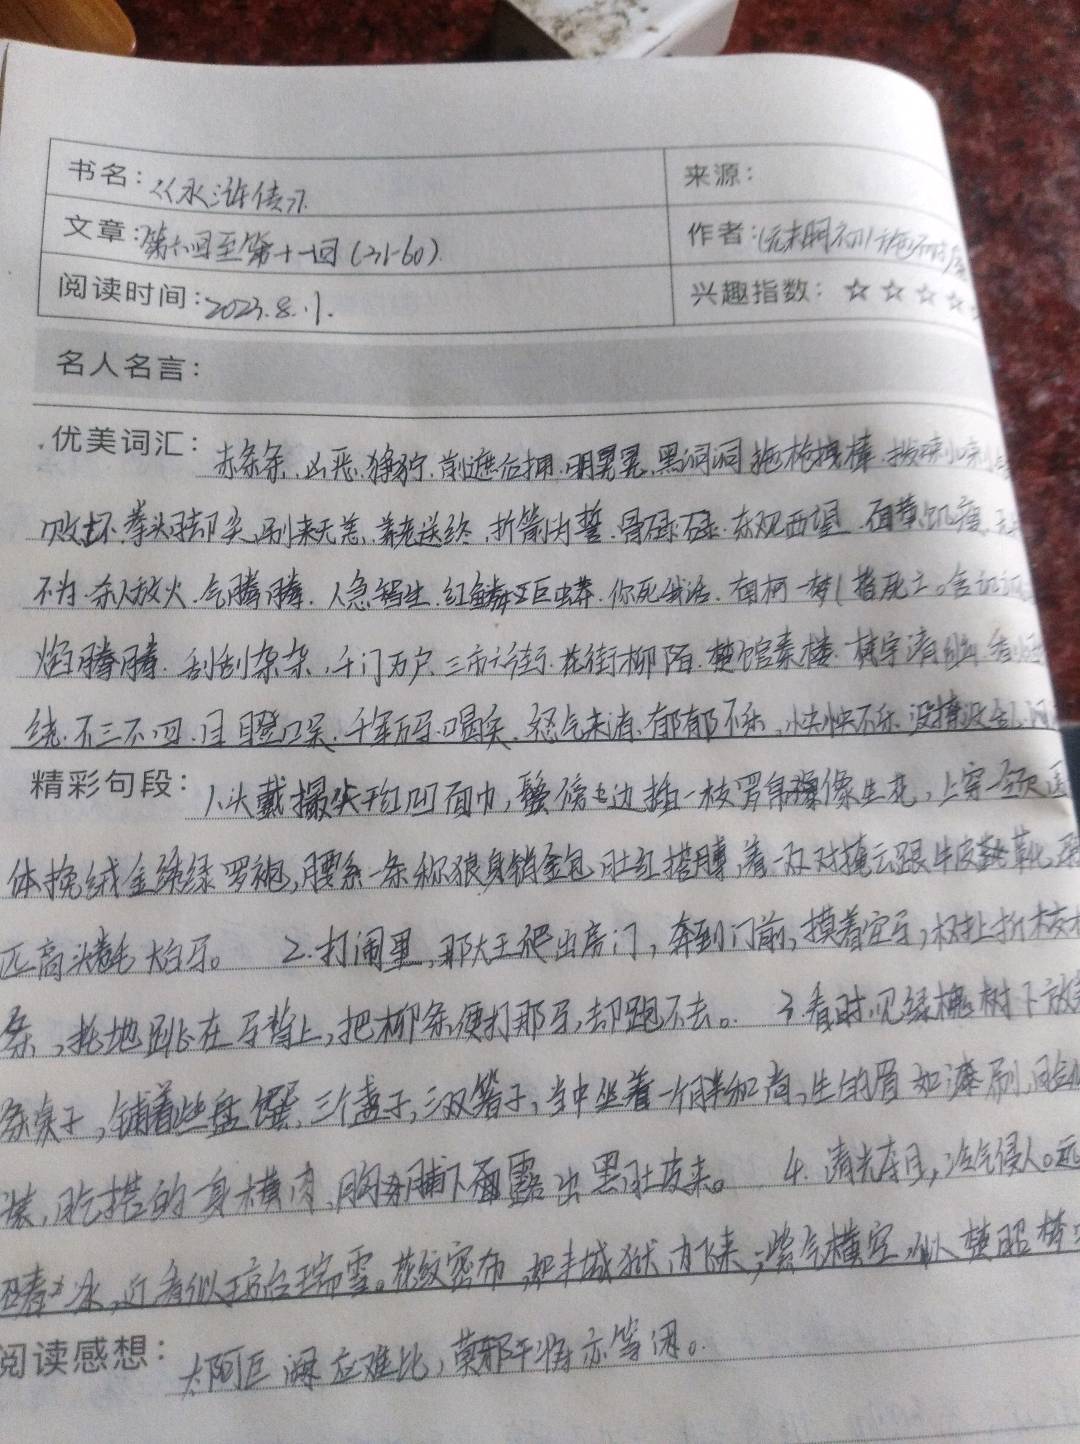 书名：《水浒传》
来源：
文章：第六回至第十一回（31-60）
作者：（元末明初）施耐庵
阅读时间：2023.8.1.
兴趣指数：☆☆☆☆
名人名言：
优美词汇：赤条条、凶恶、狰狞、前遮后拥、明晃晃、黑洞洞、拖枪拽棒、
败坏、拳头脚尖、别来无恙、养老送终、折箭为誓、骨碌碌、东观西望、面黄饥瘦、
不为、杀人放火、气腾腾、人急智生、红鳞巨蟒、你死我活、南柯一梦（指死亡。
焰腾腾、刮刮杂杂、千门万户、三市六街、花街柳陌、楚馆秦楼、梵宇清幽、
绕、不三不四、目瞪口呆、千军万马、唱笑、怒气未消、郁郁不乐、怏怏不乐、没情没绪、
精彩句段：1、头戴撮尖干红凹面巾，鬓傍边插一枝罗帛像生花，上穿一
体挽绒金绣绿罗袍，腰系一条称狼身销金包肚红搭膊，着一双对掩云跟牛皮靴，
匹高头卷毛大白马。 2.打闹里，那大王爬出房门，奔到门前，摸着空马，树上折枝柳
条，托地跳在马背上，把柳条便打那马，却跑不去。 3.看时，见绿槐树下放
条桌子，铺着些盘馔，三个盏子，三双箸子，当中坐着一个胖和尚，生的眉如漆刷，
装，肐搭的一身横肉，胸脯下露出黑肚皮来。 4.清光夺目，冷气侵人。远
春冰，近看似琼台瑞雪。花纹密布，如丰城狱内飞来；紫气横空，似楚昭梦
阅读感想：太阿巨阙应难比，莫邪干将亦等闲。